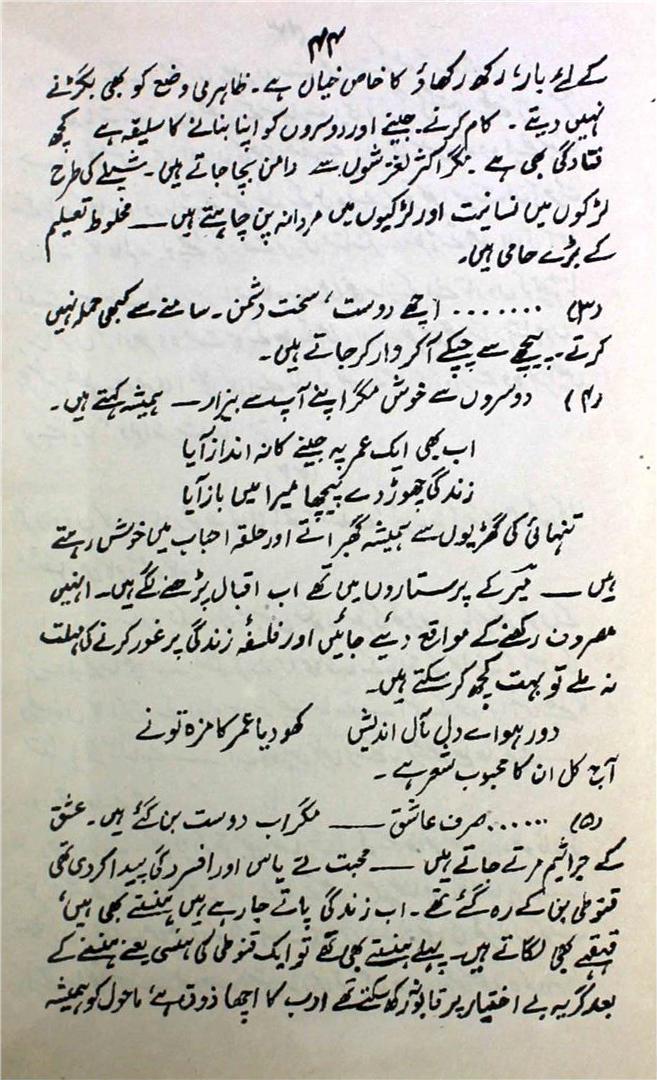 ۴۴
کے لئے بار، رکھ رکھاؤ کا خاص خیال ہے۔ ظاہری وضع کو بھی بگڑنے
نہیں دیتے۔ کام کرنے۔ جینے اور دوسروں کو اپنا بنانے کا سلیقہ ہے کچھ
فتادگی بھی ہے۔ مگر اکثر لغزشوں سے دامن بچا جاتے ہیں۔ شیلے کی طرح
لڑکوں میں نسانیت اور لڑکیوں میں مردانہ پن چاہتے ہیں — مخلوط تعلیم
کے بڑے حامی ہیں۔
(۳) ....... اچھے دوست، سخت دشمن۔ سامنے سے کبھی حملہ نہیں
کرتے۔ پیچھے سے چپکے آکر وار کر جاتے ہیں۔
(۴) دوسروں سے خوش مگر اپنے آپ سے بیزار — ہمیشہ کہتے ہیں۔
اب بھی ایک عمر پہ جینے کا نہ انداز آیا
زندگی چھوڑ دے پیچھا میرا میں باز آیا
تنہائی کی گھڑیوں سے ہمیشہ گھبراتے اور حلقہ احباب میں خوش رہتے
ہیں — میر کے پرستاروں میں تھے اب اقبال پڑھنے لگے ہیں۔ انہیں
مصروف رکھنے کے مواقع دئیے جائیں اور فلسفۂ زندگی پر غور کرنے کی مہلت
نہ ملے تو بہت کچھ کر سکتے ہیں۔
دور ہو اے دلِ مآل اندیش کھو دیا عمر کا مزہ تو نے
آج کل ان کا محبوب شعر ہے۔
(۵) ...... صرف عاشق — مگر اب دوست بن گئے ہیں۔ عشق
کے جراثیم مرتے جاتے ہیں — محبت نے یاس اور افسردگی پیدا کر دی تھی
قنوطی بن کے رہ گئے تھے۔ اب زندگی پاتے جا رہے ہیں ہنستے بھی ہیں،
قہقہے بھی لگاتے ہیں۔ پہلے ہنستے بھی تھے تو ایک قنوطی کی ہنسی یعنے ہنسنے کے
بعد گریہ بے اختیار پر قابو نہ رکھ سکتے تھے ادب کا اچھا ذوق ہے، ماحول کو ہمیشہ